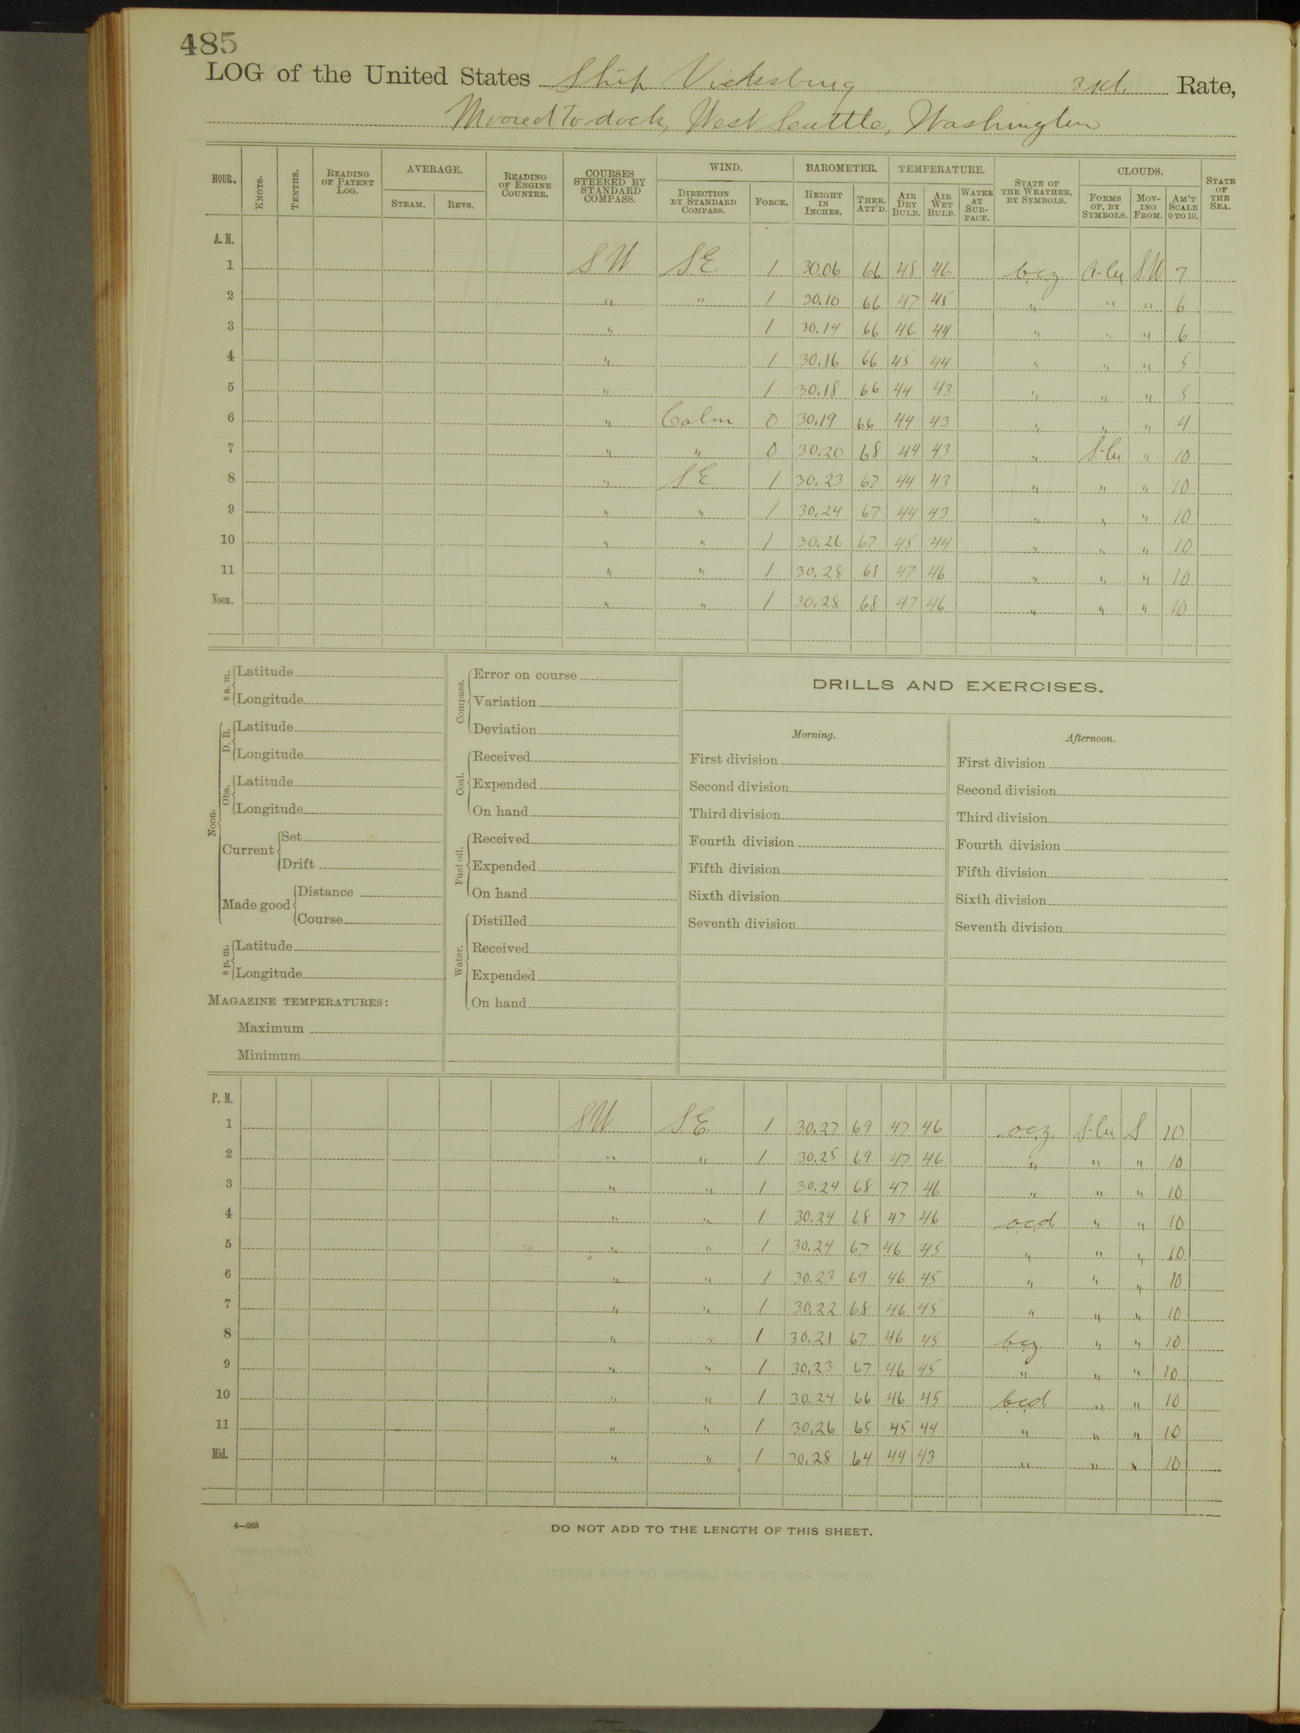 485
LOG of the United States Ship Vicksburg 3rd. Rate,
Moored to dock, West Seattle, Washington
HOUR. KNOTS. TENTHS. READING OF PATENT LOG. AVERAGE. STEAM. REVS. READING OF ENGINE COUNTER. COURSES STEERED BY STANDARD COMPASS. WIND. DIRECTION BY STANDARD COMPASS. FORCE. BAROMETER. HEIGHT IN INCHES. THER. ATT'D. TEMPERATURE. AIR DRY BULB. AIR WET BULB. WATER AT SURFACE. STATE OF THE WEATHER, BY SYMBOLS. CLOUDS. FORMS OF, BY SYMBOLS. MOVING FROM. AM'T SCALE 0 TO 10. STATE OF THE SEA.
A. M.
1 SW SE 1 30.06 66 48 46 bcz A-Cu SW 7
2 " " 1 30.10 66 47 45 " " " 6
3 " 1 30.14 66 46 44 " " " 6
4 " 1 30.16 66 45 44 " " " 5
5 " 1 30.18 66 44 43 " " " 5
6 " Calm 0 30.19 66 44 43 " " " 4
7 " " 0 30.20 68 44 43 " S-Cu " 10
8 " SE 1 30.23 67 44 43 " " " 10
9 " " 1 30.24 67 44 43 " " " 10
10 " " 1 30.26 67 45 44 " " " 10
11 " " 1 30.28 68 47 46 " " " 10
Noon. " " 1 30.28 68 47 46 " " " 10
8 a. m. Latitude
Longitude
Noon. D. R. Latitude
Longitude
Obs. Latitude
Longitude
Current Set
Drift
Made good Distance
Course
8 p. m. Latitude
Longitude
MAGAZINE TEMPERATURES:
Maximum
Minimum
Compass. Error on course
Variation
Deviation
Coal. Received
Expended
On hand
Fuel oil. Received
Expended
On hand
Water. Distilled
Received
Expended
On hand
DRILLS AND EXERCISES.
Morning.
First division
Second division
Third division
Fourth division
Fifth division
Sixth division
Seventh division
Afternoon.
First division
Second division
Third division
Fourth division
Fifth division
Sixth division
Seventh division
P. M.
1 SW SE 1 30.27 69 47 46 ocz S-Cu S 10
2 " " 1 30.25 69 47 46 " " " 10
3 " " 1 30.24 68 47 46 " " " 10
4 " " 1 30.24 68 47 46 ocd " " 10
5 " " 1 30.24 67 46 45 " " " 10
6 " " 1 30.23 69 46 45 " " " 10
7 " " 1 30.22 68 46 45 " " " 10
8 " " 1 30.21 67 46 45 bcz " " 10
9 " " 1 30.23 67 46 45 " " " 10
10 " " 1 30.24 66 46 45 bcd " " 10
11 " " 1 30.26 65 45 44 " " " 10
Mid. " " 1 30.28 64 44 43 " " " 10
4—265
DO NOT ADD TO THE LENGTH OF THIS SHEET.